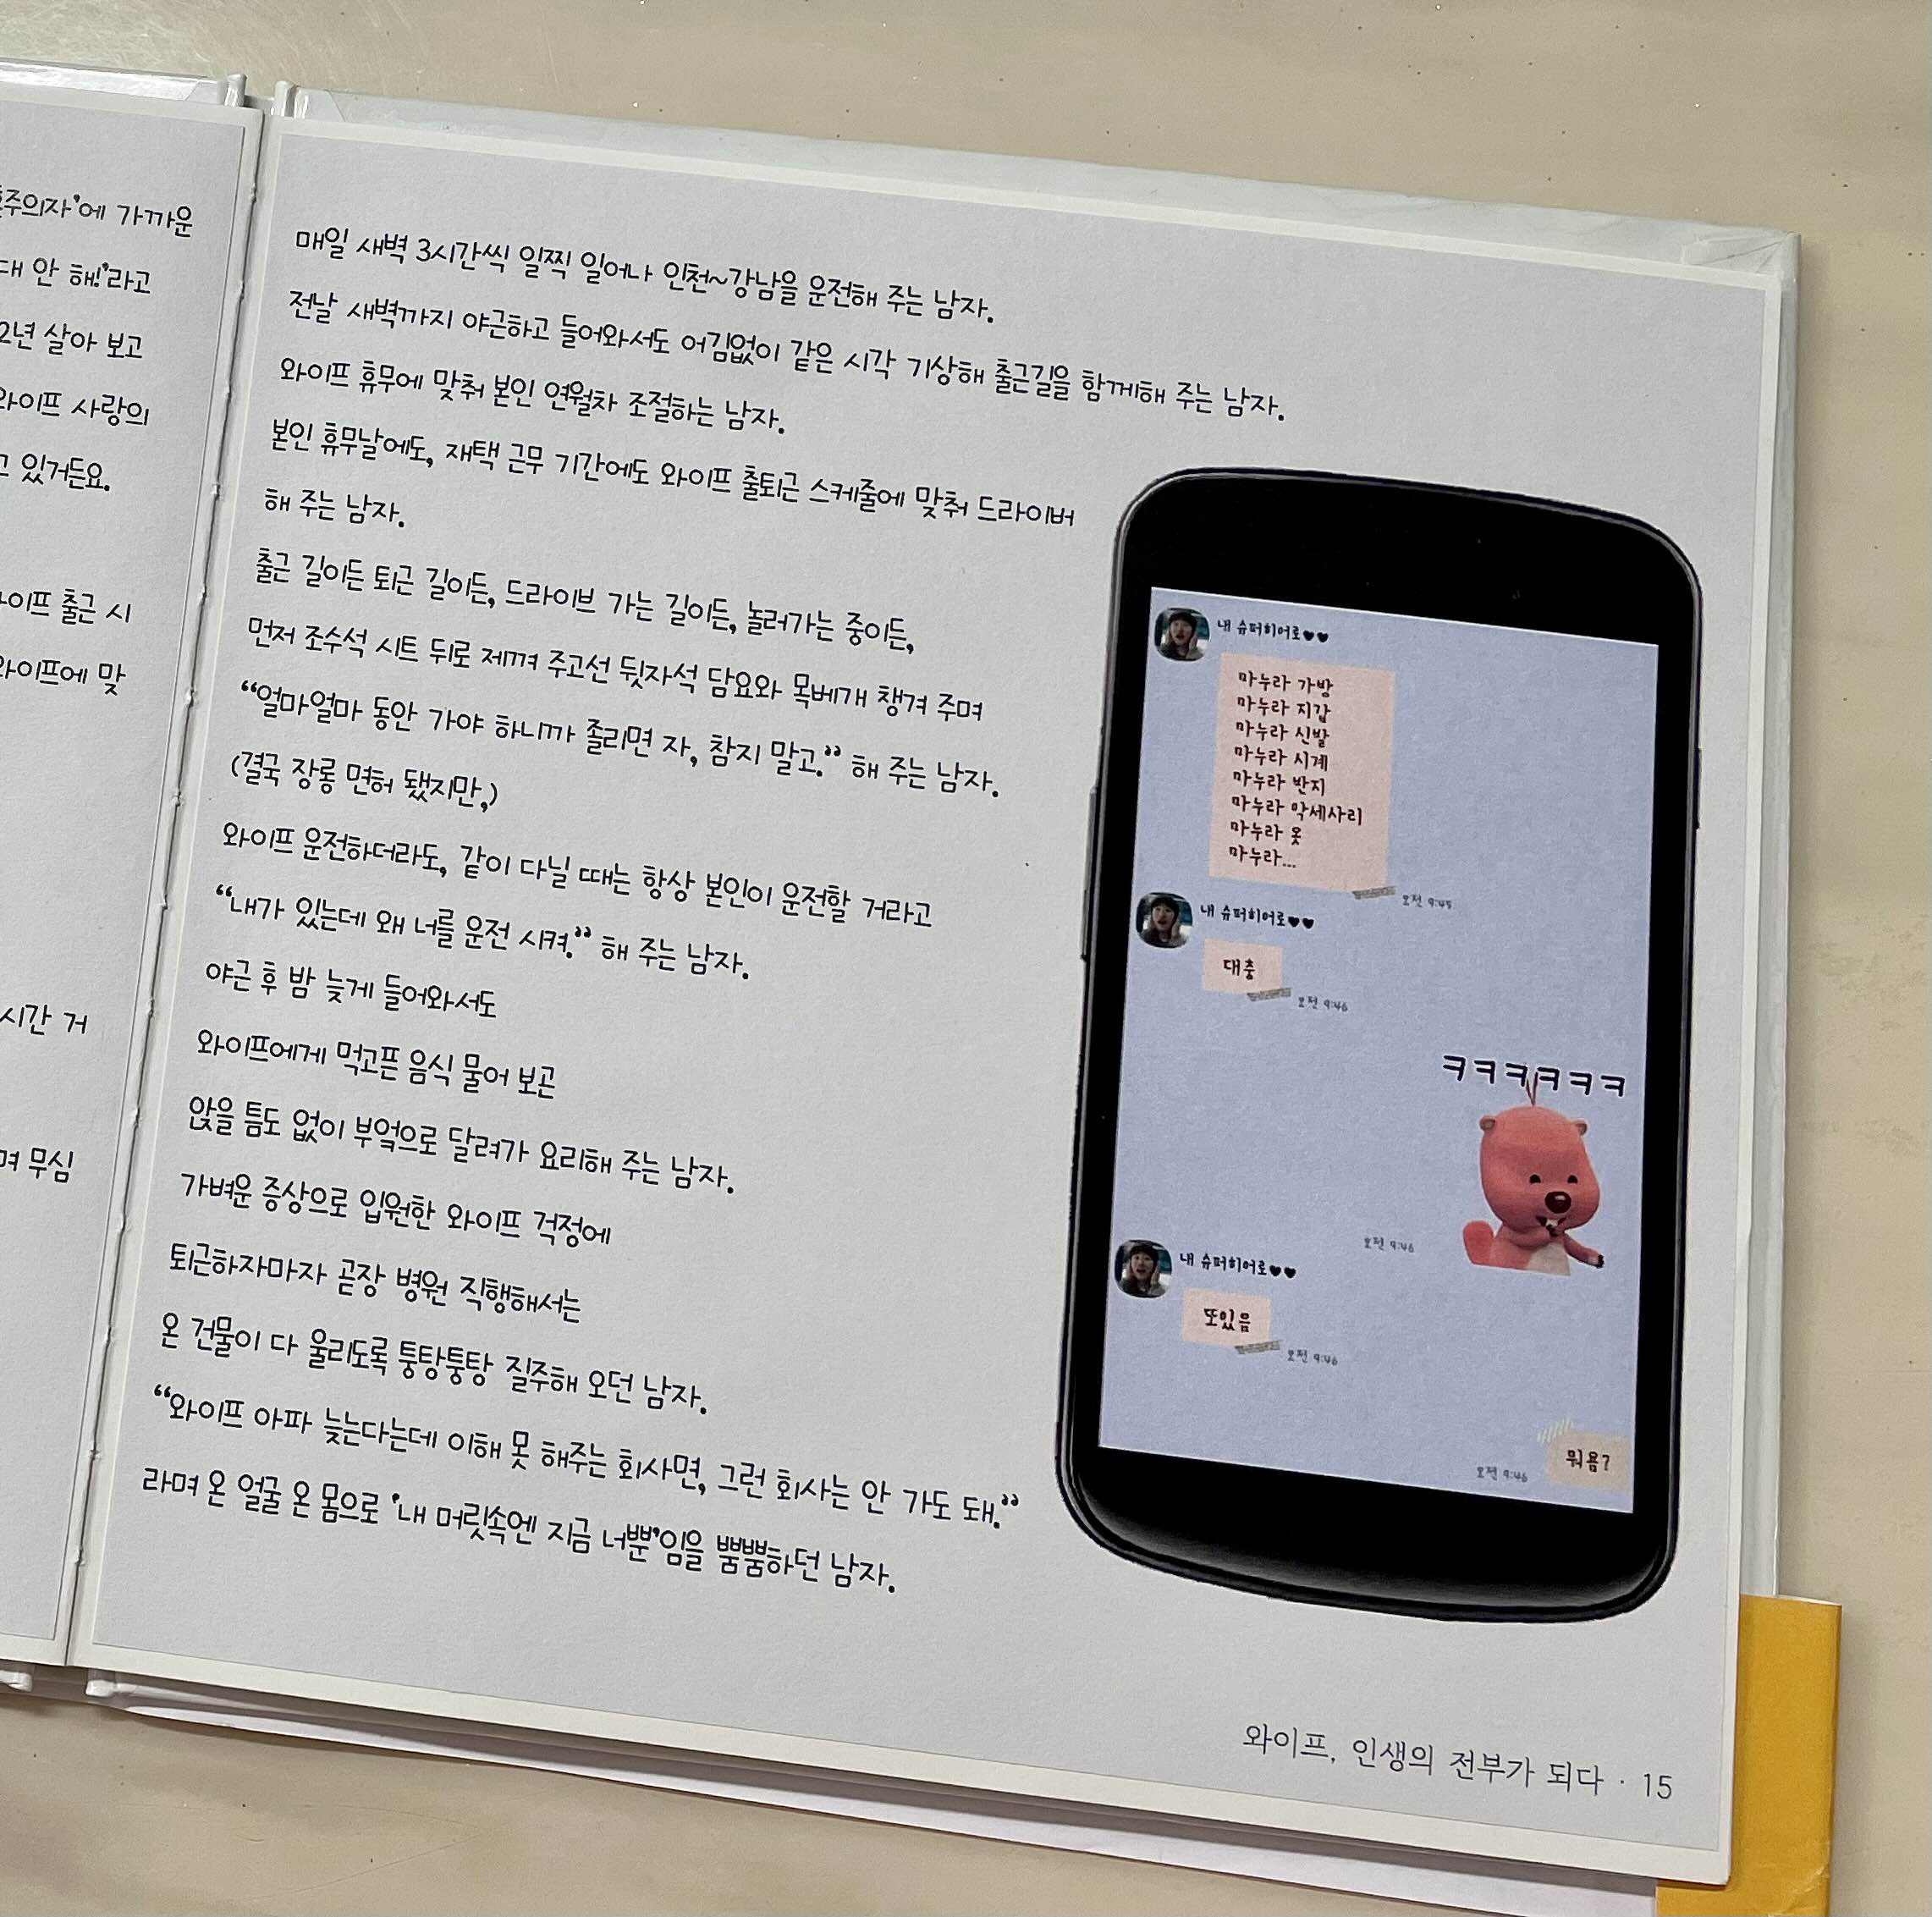 주의자'에 가까운
대 안 해!'라고
2년 살아 보고
와이프 사랑의
고 있거든요.
와이프 출근 시
와이프에 맞
시간 거
며 무심
매일 새벽 3시간씩 일찍 일어나 인천~강남을 운전해 주는 남자.
전날 새벽까지 야근하고 들어와서도 어김없이 같은 시각 기상해 출근길을 함께해 주는 남자.
와이프 휴무에 맞춰 본인 연월차 조절하는 남자.
본인 휴무날에도, 재택 근무 기간에도 와이프 출퇴근 스케줄에 맞춰 드라이버
해 주는 남자.
출근 길이든 퇴근 길이든, 드라이브 가는 길이든, 놀러가는 중이든,
먼저 조수석 시트 뒤로 제껴 주고선 뒷자석 담요와 목베개 챙겨 주며
“얼마얼마 동안 가야 하니까 졸리면 자, 참지 말고.” 해 주는 남자.
(결국 장롱 면허 됐지만,)
와이프 운전하더라도, 같이 다닐 때는 항상 본인이 운전할 거라고
“내가 있는데 왜 너를 운전 시켜.” 해 주는 남자.
야근 후 밤 늦게 들어와서도
와이프에게 먹고픈 음식 물어 보곤
앉을 틈도 없이 부엌으로 달려가 요리해 주는 남자.
가벼운 증상으로 입원한 와이프 걱정에
퇴근하자마자 곧장 병원 직행해서는
온 건물이 다 울리도록 퉁탕퉁탕 질주해 오던 남자.
“와이프 아파 늦는다는데 이해 못 해주는 회사면, 그런 회사는 안 가도 돼.”
라며 온 얼굴 온 몸으로 '내 머릿속엔 지금 너뿐'임을 뿜뿜하던 남자.
내 슈퍼히어로♥♥
마누라 가방
마누라 지갑
마누라 신발
마누라 시계
마누라 반지
마누라 악세사리
마누라 옷
마누라...
오전 9:45
내 슈퍼히어로♥♥
대충
오전 9:46
ㅋㅋㅋㅋㅋㅋ
오전 9:46
내 슈퍼히어로♥♥
또있음
오전 9:46
뭐욤?
오전 9:46
와이프, 인생의 전부가 되다 · 15